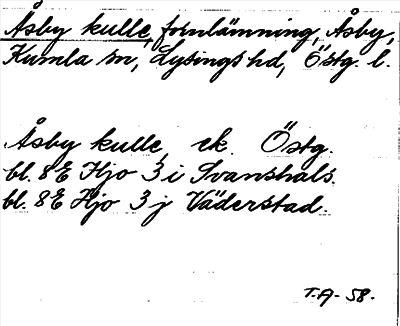 Åsby kulle, fornlämning, Åsby,
Kumla sn, Lysings hd, Östg. l.
Åsby kulle, ek. Östg.
bl. 8E Hjo 3 i Svanshals.
bl. 8E Hjo 3 j Väderstad.
T.A. 58.